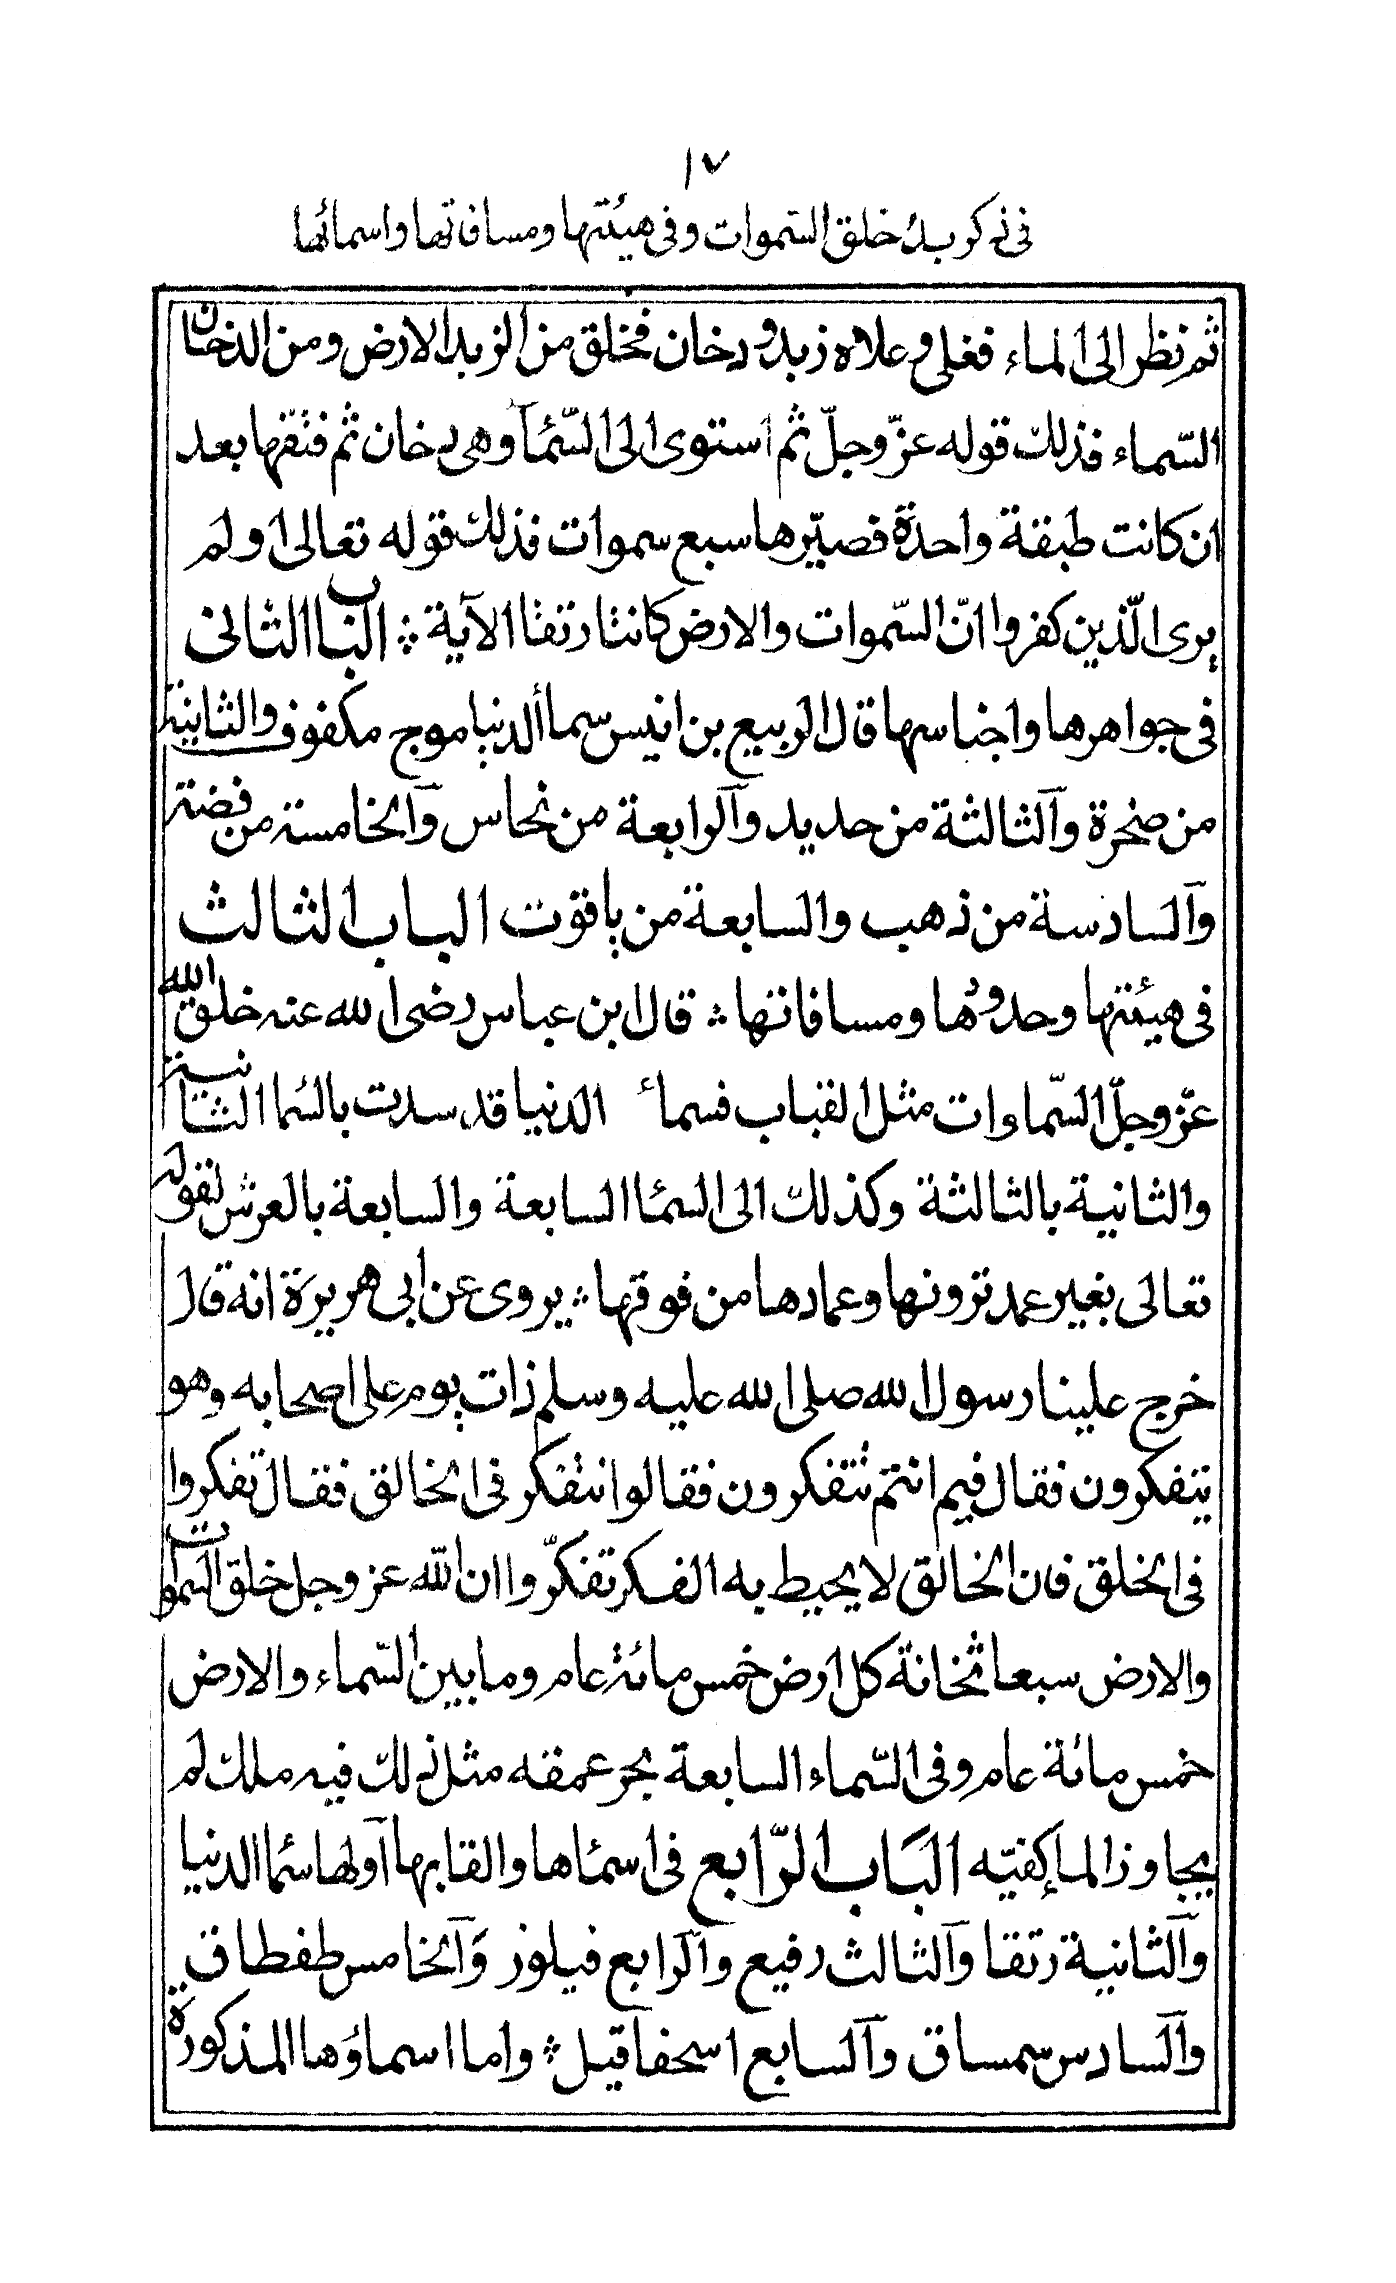 ١٧
فى ذكر بدء خلق السّموات وفى هيئتها ومسافاتها واسمائها
ثم نظر الى الماء فغلى وعلاه زبد ودخان فخلق من الزبد الارض ومن الدخان
السّماء فذلك قوله عزّ وجلّ ثم استوى الى السّمآ وهى دخان ثم فتقها بعد
ان كانت طبقة واحدة فصيّرها سبع سموات فذلك قوله تعالى اولم
يرى الّذين كفروا انّ السّموات والارض كانتا رتقا الآية ؞ الباب الثانى
فى جواهرها واجناسها قال الربيع بن انيس سماء الدنيا موج مكفوف والثانية
من صخرة والثالثة من حديد والرابعة من نحاس والخامسة من فضة
والسادسة من ذهب والسابعة من ياقوت الباب الثالث
فى هيئتها وحدودها ومسافاتها ؞ قال ابن عباس رضى الله عنه خلق الله
عزّ وجلّ السّماوات مثل القباب فسماء الدنيا قد سدت بالسّما الثانية
والثانية بالثالثة وكذلك الى السّما السابعة والسابعة بالعرش لقوله
تعالى بغير عمد ترونها وعمادها من فوقها ؞ يروى عن ابى هريرة انه قال
خرج علينا رسول الله صلى الله عليه وسلم ذات يوم على اصحابه وهو
يتفكرون فقال فيم انتم تتفكرون فقالوا نتفكر فى الخالق فقال تفكروا
فى الخلق فان الخالق لا يحيط به الفكر تفكّروا ان اللّه عز وجل خلق السموات
والارض سبعا ثخانة كل ارض خمس مائة عام وما بين السّماء والارض
خمس مائة عام وفى السّماء السابعة بحر عمقه مثل ذلك فيه ملك لم
يجاوز الماء كفيّه البَاب الرّابع فى اسمائها والقابها اولها سما الدنيا
والثانية رتقا والثالث رفيع والرابع فيلوز والخامس طفطاق
والسادس سمساق والسابع اسحفاقيل ؞ واما اسماؤها المذكورة